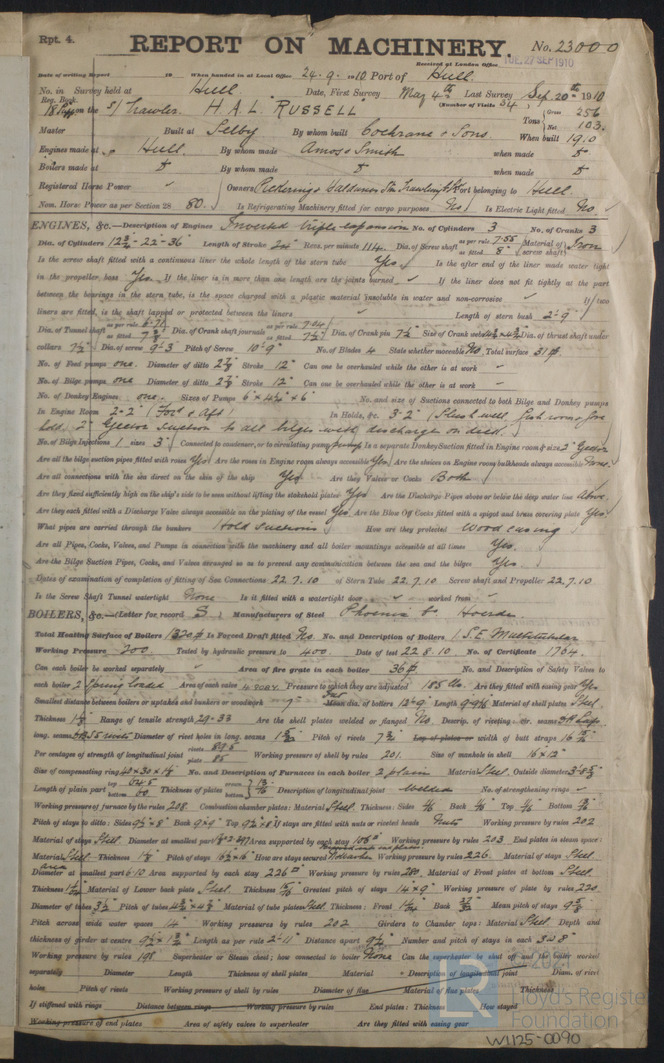 Rpt. 4.
REPORT ON MACHINERY. No. 23000
Received at London Office TUE. 27 SEP 1910
Date of writing Report 19 When handed in at Local Office 24.9.1910 Port of Hull.
No. in Survey held at Hull. Date, First Survey May 4th Last Survey Sep. 20th 1910
Reg. Book. (Number of Visits 34)
on the S/ Trawler. "H.A.L. RUSSELL" Tons Gross 256 Net 103.
Master Built at Selby By whom built Cochrane & Sons. When built 1910
Engines made at Hull. By whom made Amos & Smith when made
Boilers made at By whom made when made
Registered Horse Power Owners Pickering & Haldane's Stm Trawling Port belonging to Hull.
Nom. Horse Power as per Section 28 80. Is Refrigerating Machinery fitted for cargo purposes No Is Electric Light fitted No.
ENGINES, &c.—Description of Engines Inverted triple expansion No. of Cylinders 3 No. of Cranks 3
Dia. of Cylinders 12¾-22-36" Length of Stroke 24" Revs. per minute 114. Dia. of Screw shaft as per rule 7.55 as fitted 8" Material of screw shaft Iron
Is the screw shaft fitted with a continuous liner the whole length of the stern tube Yes. Is the after end of the liner made water tight
in the propeller boss Yes. If the liner is in more than one length are the joints burned If the liner does not fit tightly at the part
between the bearings in the stern tube, is the space charged with a plastic material insoluble in water and non-corrosive If two
liners are fitted, is the shaft lapped or protected between the liners Length of stern bush 2'-9"
Dia. of Tunnel shaft as per rule 6.71 as fitted Dia. of Crank shaft journals as per rule 7.04 as fitted 7½" Dia. of Crank pin 7½" Size of Crank webs Dia. of thrust shaft under
collars 7½" Dia. of screw 9'-3" Pitch of Screw 10'-9" No. of Blades 4 State whether moveable No. Total surface 31
No. of Feed pumps one. Diameter of ditto Stroke 12" Can one be overhauled while the other is at work
No. of Bilge pumps one Diameter of ditto Stroke 12" Can one be overhauled while the other is at work
No. of Donkey Engines one. Sizes of Pumps No. and size of Suctions connected to both Bilge and Donkey pumps
In Engine Room 2-2" (For'd & Aft) In Holds, &c. 3-2" (Slush well, fish room & fore
hold. 2" Ejector suction to all bilges with discharge on deck.)
No. of Bilge Injections 1 sizes 3" Connected to condenser, or to circulating pump pump Is a separate Donkey Suction fitted in Engine room & size 2" Ejector
Are all the bilge suction pipes fitted with roses Yes Are the roses in Engine room always accessible Yes Are the sluices on Engine room bulkheads always accessible None.
Are all connections with the sea direct on the skin of the ship Yes Are they Valves or Cocks Both
Are they fixed sufficiently high on the ship's side to be seen without lifting the stokehold plates Yes Are the Discharge Pipes above or below the deep water line Above.
Are they each fitted with a Discharge Valve always accessible on the plating of the vessel Yes Are the Blow Off Cocks fitted with a spigot and brass covering plate Yes
What pipes are carried through the bunkers Hold suctions How are they protected Wood casing
Are all Pipes, Cocks, Valves, and Pumps in connection with the machinery and all boiler mountings accessible at all times Yes.
Are the Bilge Suction Pipes, Cocks, and Valves arranged so as to prevent any communication between the sea and the bilges Yes.
Dates of examination of completion of fitting of Sea Connections 22.7.10 of Stern Tube 22.7.10 Screw shaft and Propeller 22.7.10
Is the Screw Shaft Tunnel watertight None Is it fitted with a watertight door worked from
BOILERS, &c.—(Letter for record S) Manufacturers of Steel Phoenix Co Hoerde
Total Heating Surface of Boilers 1320 Is Forced Draft fitted No. No. and Description of Boilers 1 S.E. Multitubular
Working Pressure 200. Tested by hydraulic pressure to 400. Date of test 22.8.10 No. of Certificate 1764.
Can each boiler be worked separately Area of fire grate in each boiler 36 No. and Description of Safety Valves to
each boiler 2 Spring loaded Area of each valve Pressure to which they are adjusted 185 lbs. Are they fitted with easing gear Yes
Smallest distance between boilers or uptakes and bunkers or woodwork Mean dia. of boilers Length Material of shell plates Steel.
Thickness Range of tensile strength 29-33 Are the shell plates welded or flanged No. Descrip. of riveting: cir. seams
long. seams Diameter of rivet holes in long. seams Pitch of rivets Lap of plates or width of butt straps
Per centages of strength of longitudinal joint rivets plate 85 Working pressure of shell by rules 201. Size of manhole in shell 16"x12"
Size of compensating ring No. and Description of Furnaces in each boiler 2 plain Material Steel. Outside diameter
Length of plain part top bottom Thickness of plates crown bottom Description of longitudinal joint Welded No. of strengthening rings
Working pressure of furnace by the rules 208. Combustion chamber plates: Material Steel. Thickness: Sides Back Top Bottom
Pitch of stays to ditto: Sides Back 9"x9" Top If stays are fitted with nuts or riveted heads Nuts Working pressure by rules 202
Material of stays Steel Diameter at smallest part Area supported by each stay Working pressure by rules 203 End plates in steam space:
Material Steel Thickness Pitch of stays How are stays secured Working pressure by rules 226 Material of stays Steel
Diameter at smallest part Area supported by each stay 226 Working pressure by rules 280 Material of Front plates at bottom Steel.
Thickness Material of Lower back plate Steel. Thickness Greatest pitch of stays 14"x9" Working pressure of plate by rules 220.
Diameter of tubes 3½ Pitch of tubes Material of tube plates Steel. Thickness: Front Back Mean pitch of stays
Pitch across wide water spaces 14" Working pressures by rules 202 Girders to Chamber tops: Material Steel. Depth and
thickness of girder at centre Length as per rule 2'-11" Distance apart Number and pitch of stays in each
Working pressure by rules 198 Superheater or Steam chest; how connected to boiler None Can the superheater be shut off and the boiler worked
separately Diameter Length Thickness of shell plates Material Description of longitudinal joint Diam. of rivet
holes Pitch of rivets Working pressure of shell by rules Diameter of flue Material of flue plates Thickness
If stiffened with rings Distance between rings Working pressure by rules End plates: Thickness How stayed
Working pressure of end plates Area of safety valves to superheater Are they fitted with easing gear
© 2021
LR
Lloyd's Register
Foundation
W1125-0090